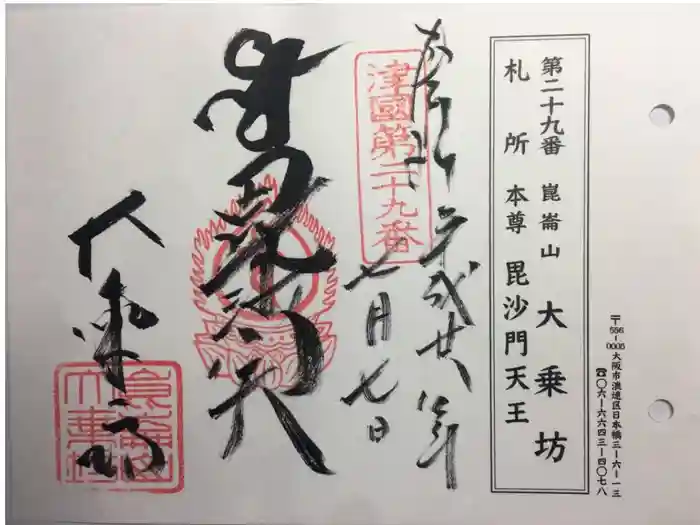 〒556-0005 大阪市浪速区日本橋三-六-一三
☎〇六-六六四三-四〇七八
第二十九番 崑崙山 大乗坊
札所本尊 毘沙門天王
奉拝 平成廿八年
七月七日
津國第二十九番
毘沙門天
大乗坊